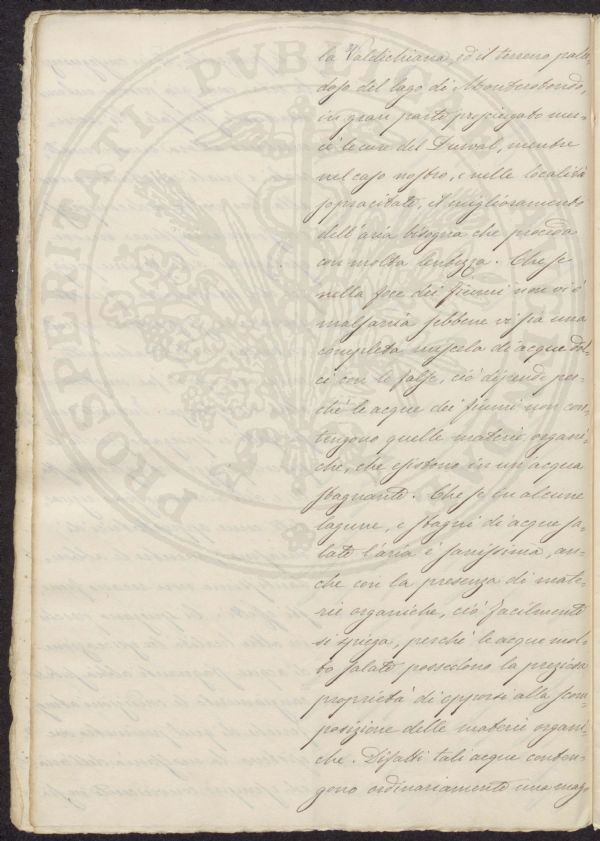 la Valdichiana, ed il terreno palu-
doso del lago di Monterotondo,
in gran parte prosciugato mer-
cè le cure del Durval, mentre
nel caso nostro, e nelle località
sopracitate, il miglioramento
dell'aria bisogna che proceda
con molta lentezza. Che se
nella foce dei fiumi non vi è
malsania sebbene vi sia una
completa miscela di acque dol-
ci con le salse, ciò dipende per-
chè le acque dei fiumi non con-
tengono quelle materie organi-
che, che esistono in un'acqua
stagnante. Che se in alcune
lagune, e stagni di acque sa-
late l'aria è sanissima, an-
che con la presenza di mate-
rie organiche, ciò facilmente
si spiega, perchè le acque mol-
to salate possedono la preziosa
proprietà di opporsi alla scom-
posizione delle materie organi-
che. Difatti tali acque conten-
gono ordinariamente una mag-
PROSPERITATI PVBLICAE